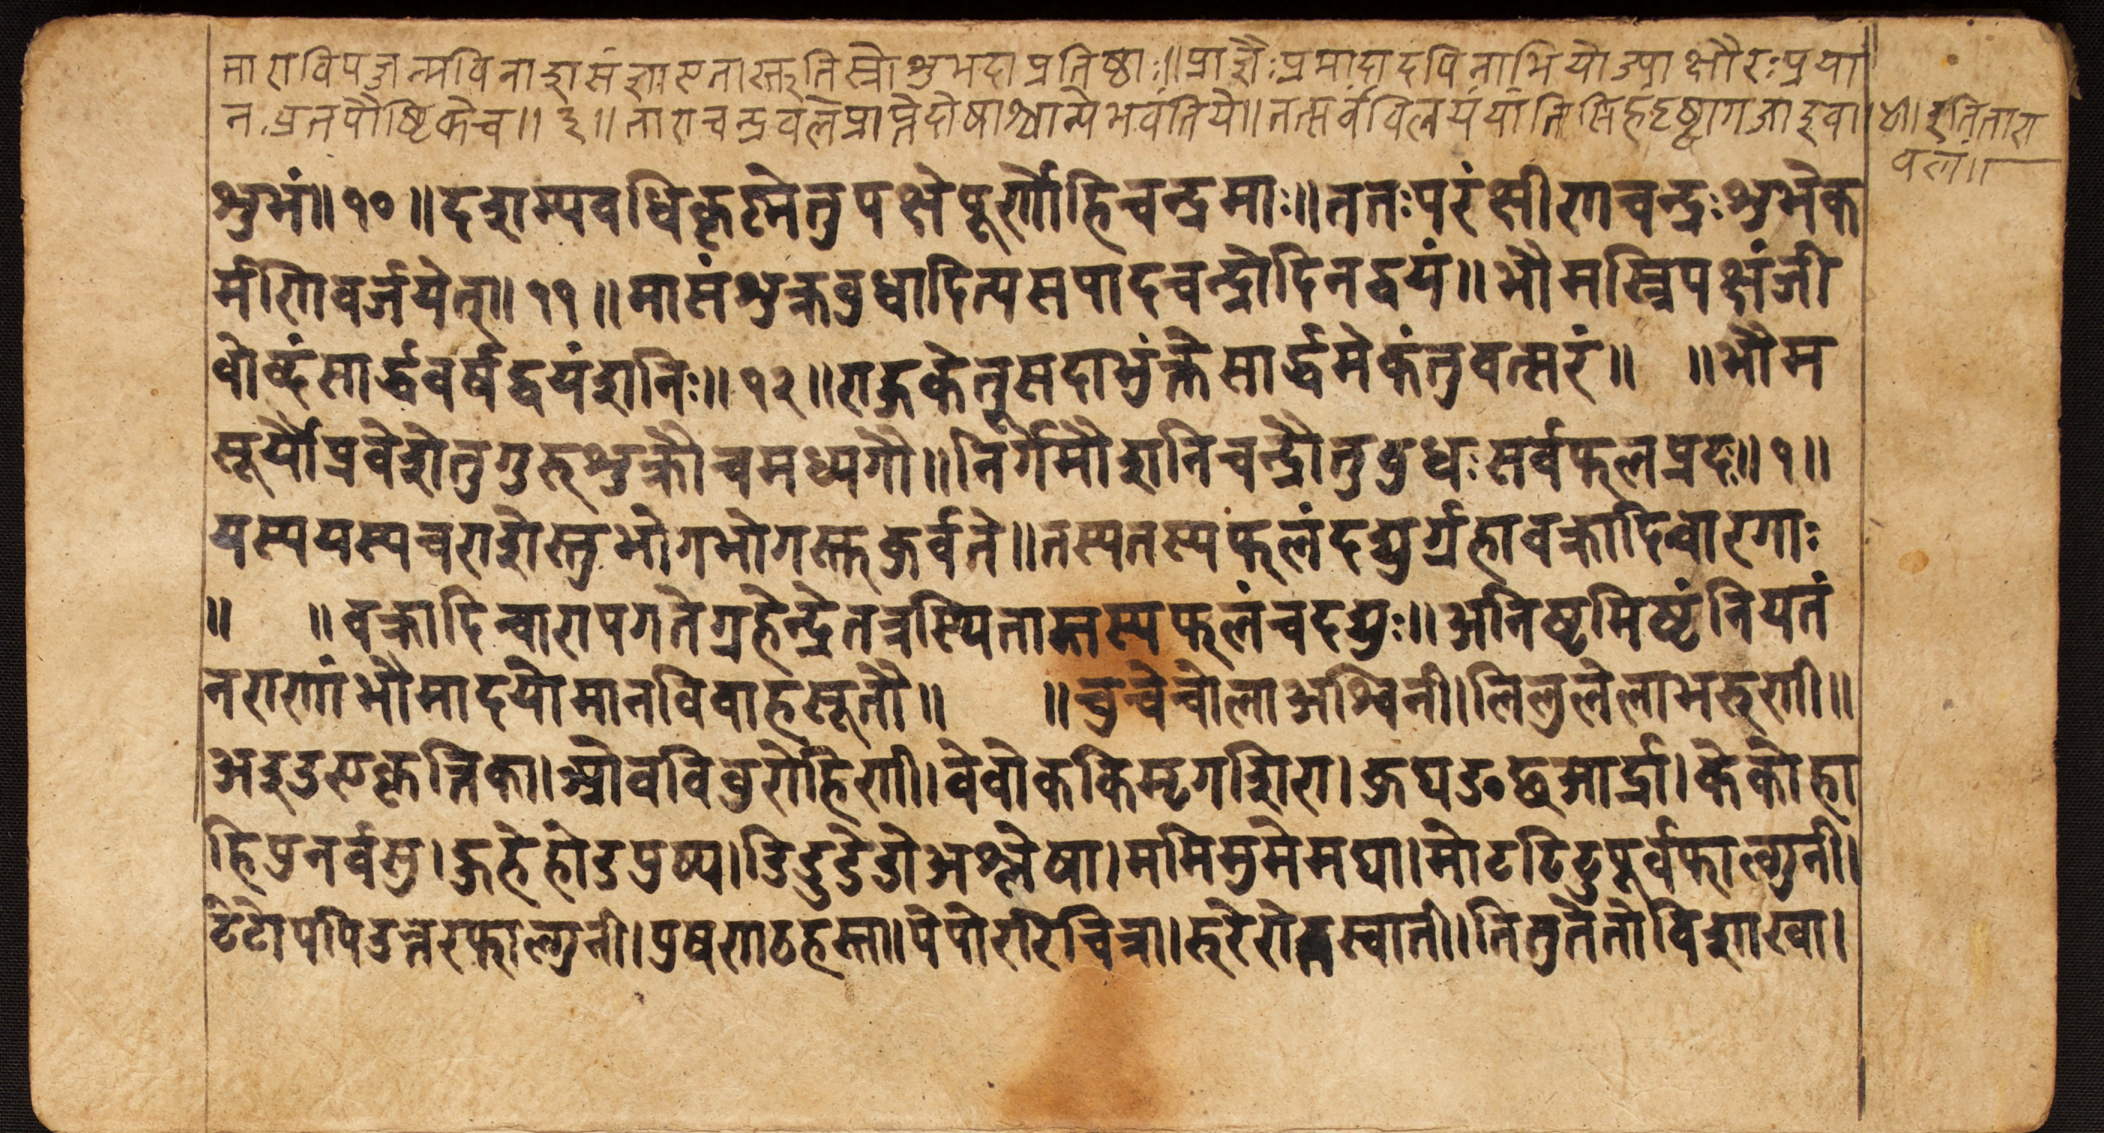 ताराविपज्जन्मविनाशसंज्ञास्पनास्तुतिस्रोशुभदाप्रतिष्ठाः॥प्राज्ञैःप्रमादादपिनाभियोज्याक्षौरःप्रया
नव्रतपौष्टिकेच॥३॥ताराचन्द्रवलेप्राप्तेदोषाश्चान्येभवंतिये॥तत्सर्वंविलयंयांतिसिंहंदृष्ट्वागजाइवा॥४॥इतितारा
वलं॥
शुभं॥१०॥दशम्यवधिकृष्नेतुपक्षेपूर्णोहिचन्द्रमाः॥ततःपरंक्षीणचन्द्रःशुभेक
र्मणिवर्जयेत्॥११॥मासंशुक्रवुधादित्यसपादचन्द्रोदिनद्वयं॥भौमस्त्रिपक्षंजी
वोब्दंसार्द्धवर्षद्वयंशनिः॥१२॥राहुकेतूसदाभुंक्तेसार्द्धमेकंतुवत्सरं॥ ॥भौम
सूर्यौप्रवेशेतुगुरुशुक्रौचमध्यगौ॥निर्गमौशनिचन्द्रौतुवुधःसर्वफलप्रदः॥१॥
यस्ययस्यचराशेस्तुभोगभोगस्तुकुर्वते॥तस्यतस्यफलंदद्युर्ग्रहावक्रादिचारगाः
॥ ॥वक्रादिचारापगतेग्रहेन्द्रेतत्रस्थितास्तस्यफलंचदद्युः॥अनिष्टमिष्टंनियतं
नराणांभौमादयोमानविवाहसूतौ॥ ॥चुचेचोलाअश्विनी।लिलुलेलोभरूणी॥
अइउएकृत्तिका।ओवविवुरोहिणी।वेवोककिमृगशिरा।कुघङछआर्द्रा।केकोहा
हिपुनर्वसु।हुहेहोडपुष्य।डिडुडेडोअश्लेषा।ममिमुमेमघा।मोटटिटुपूर्वफाल्गुनी।
टेटोपपिउत्तरफाल्गुनी।पुषणठहस्ता।पेपोररिचित्रा।रुरेरोतस्वाती।तितुतेतोविशाखा।